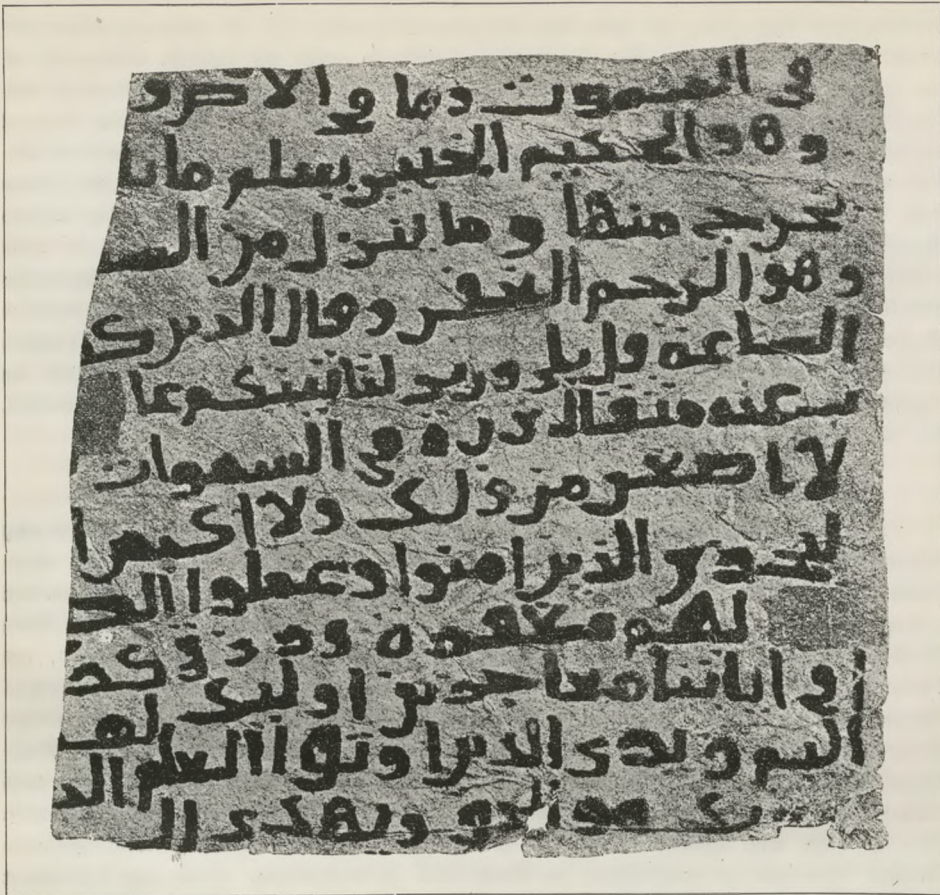 في السموت وما في الارض و
وهو الحكيم الخبير يعلم ما يل
يخرج منها وما ينزل من السـ
وهو الرحيم الغفر وقال الذين كـ
الساعة قل بلى وربى لتاتينكم عا
عنه مثقال ذرة في السموات
لا اصغر من ذلك ولا اكبر ا
ليجزي الذين امنوا وعملوا الصـ
لهم مغفرة ورزق كـ
في اياتنا معجزين اوليك لهـ
اليم ويرى الذين اوتوا العلم الذ
ربك هو الحق ويهدى الى